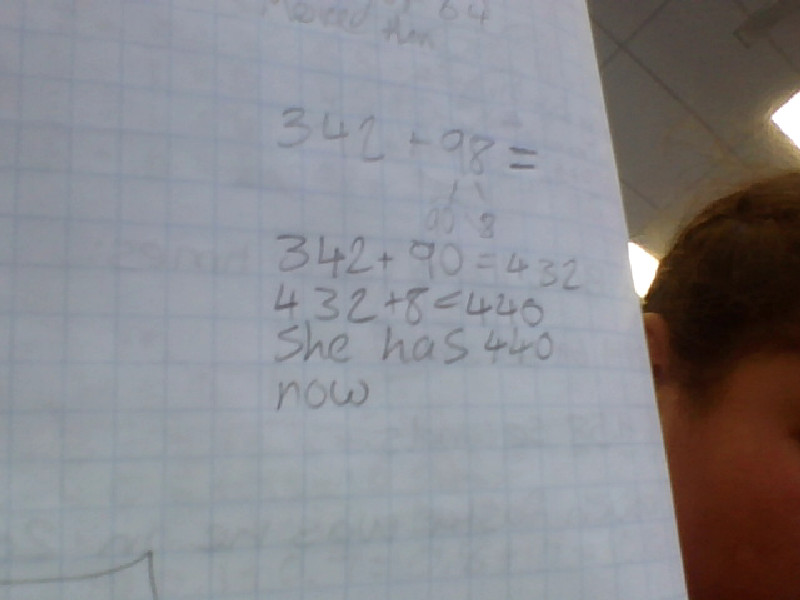 64
342 + 98 =
90 8
342 + 90 = 432
432 + 8 = 440
She has 440
now